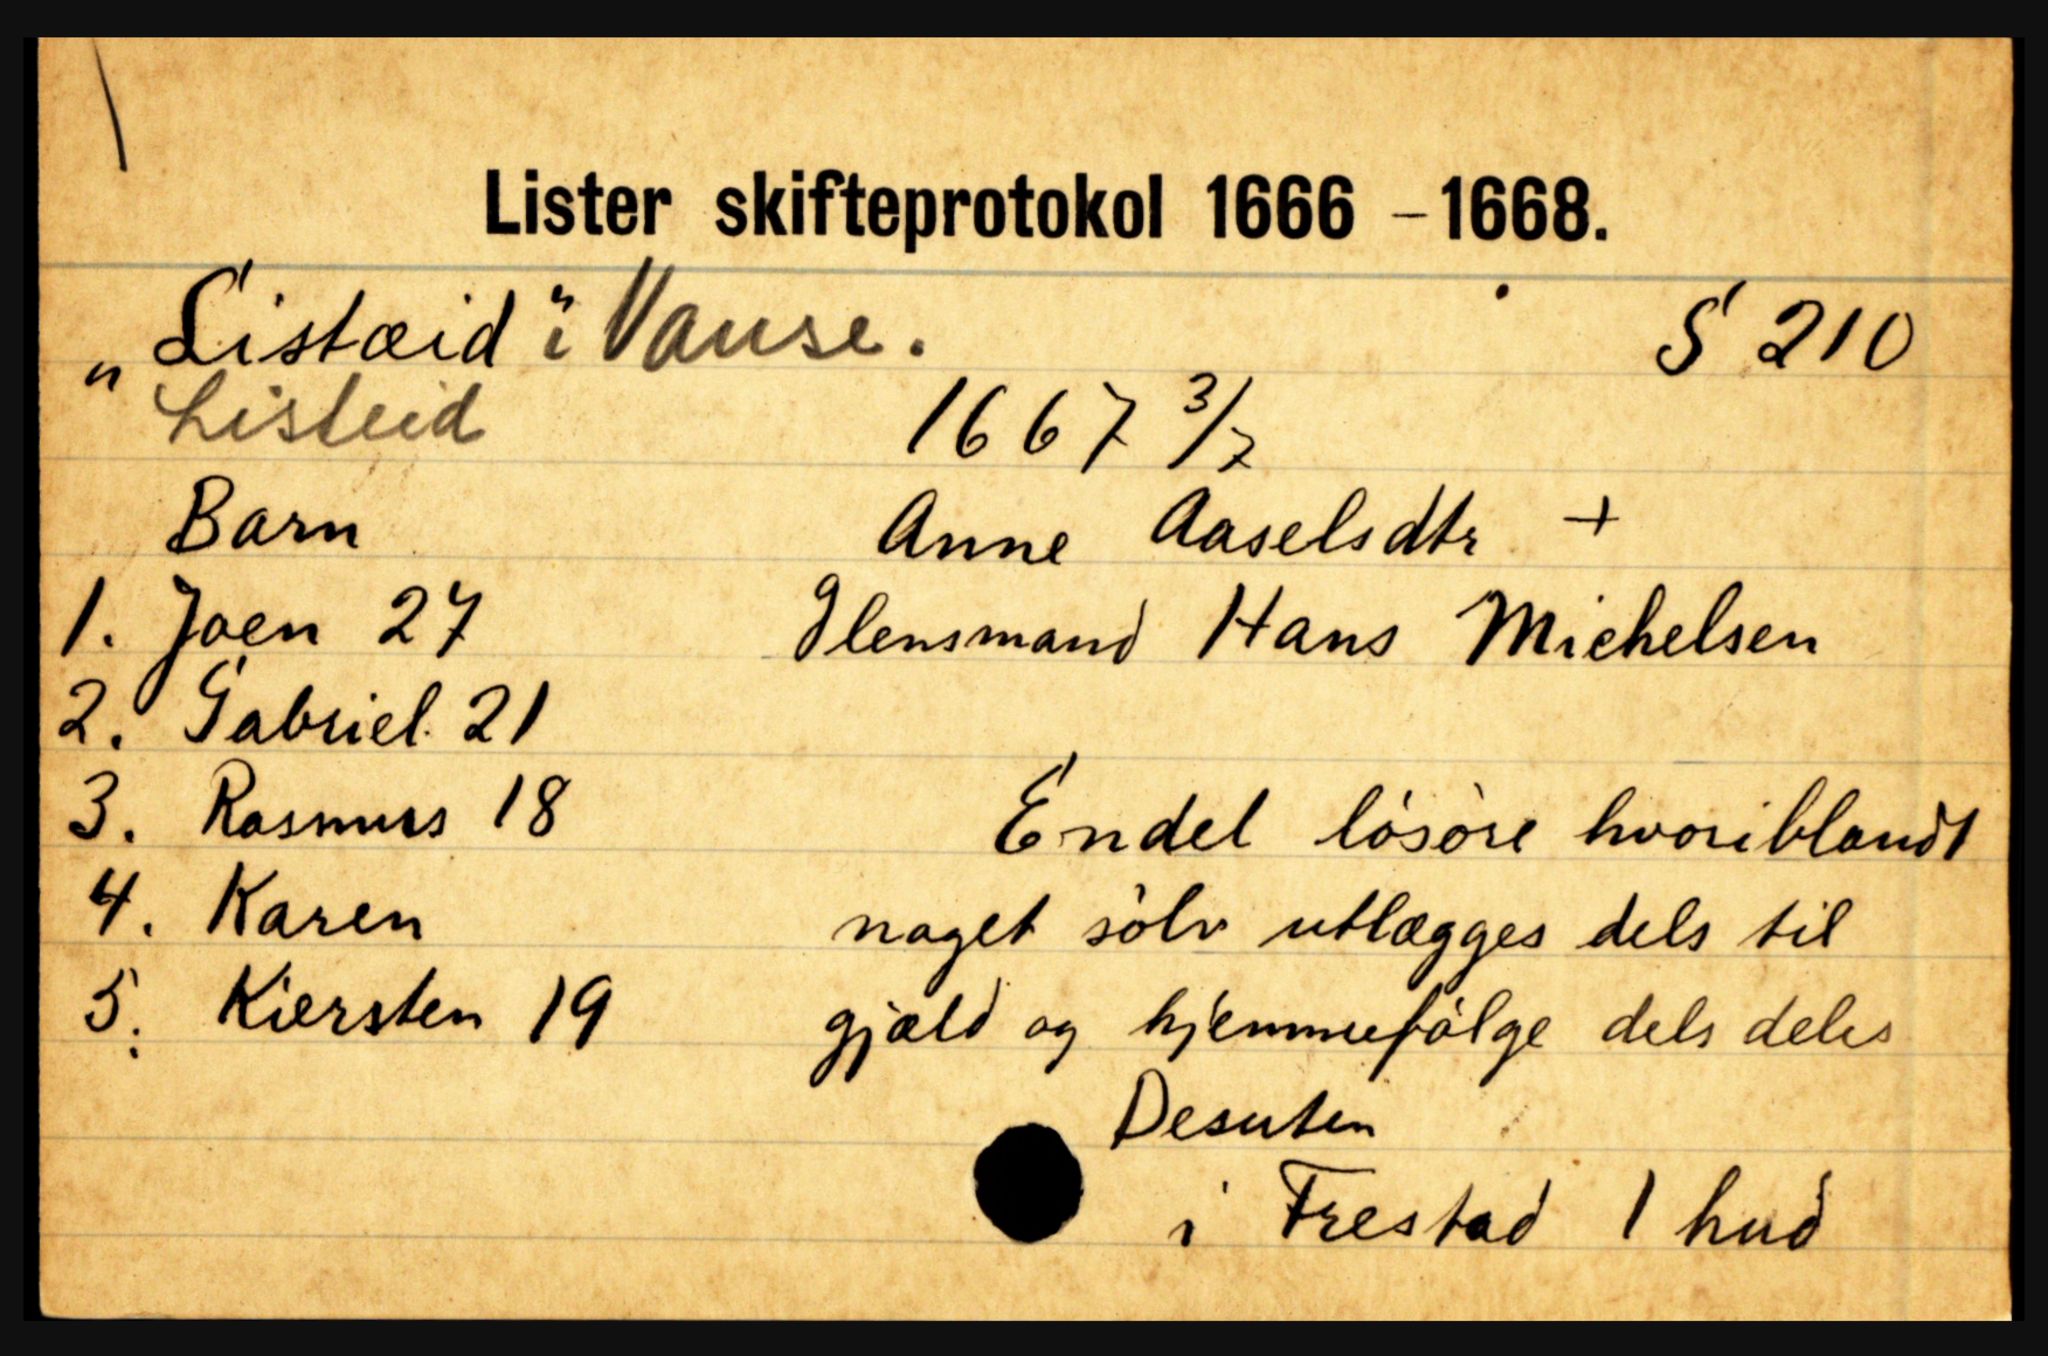 Lister skifteprotokol 1666 - 1668.
„Listæid" i Vanse. S 210
Listeid
1667 3/7
Barn Anne Aaselsdtr +
1. Joen 27 Glensmand Hans Michelsen
2. Gabriel 21
3. Rasmus 18 Endel lösöre hvoriblandt
4. Karen noget sölv utlægges dels til
5. Kiersten 19 gjæld og hjemmefölge dels deles
Desuten
i Frestad 1 hud